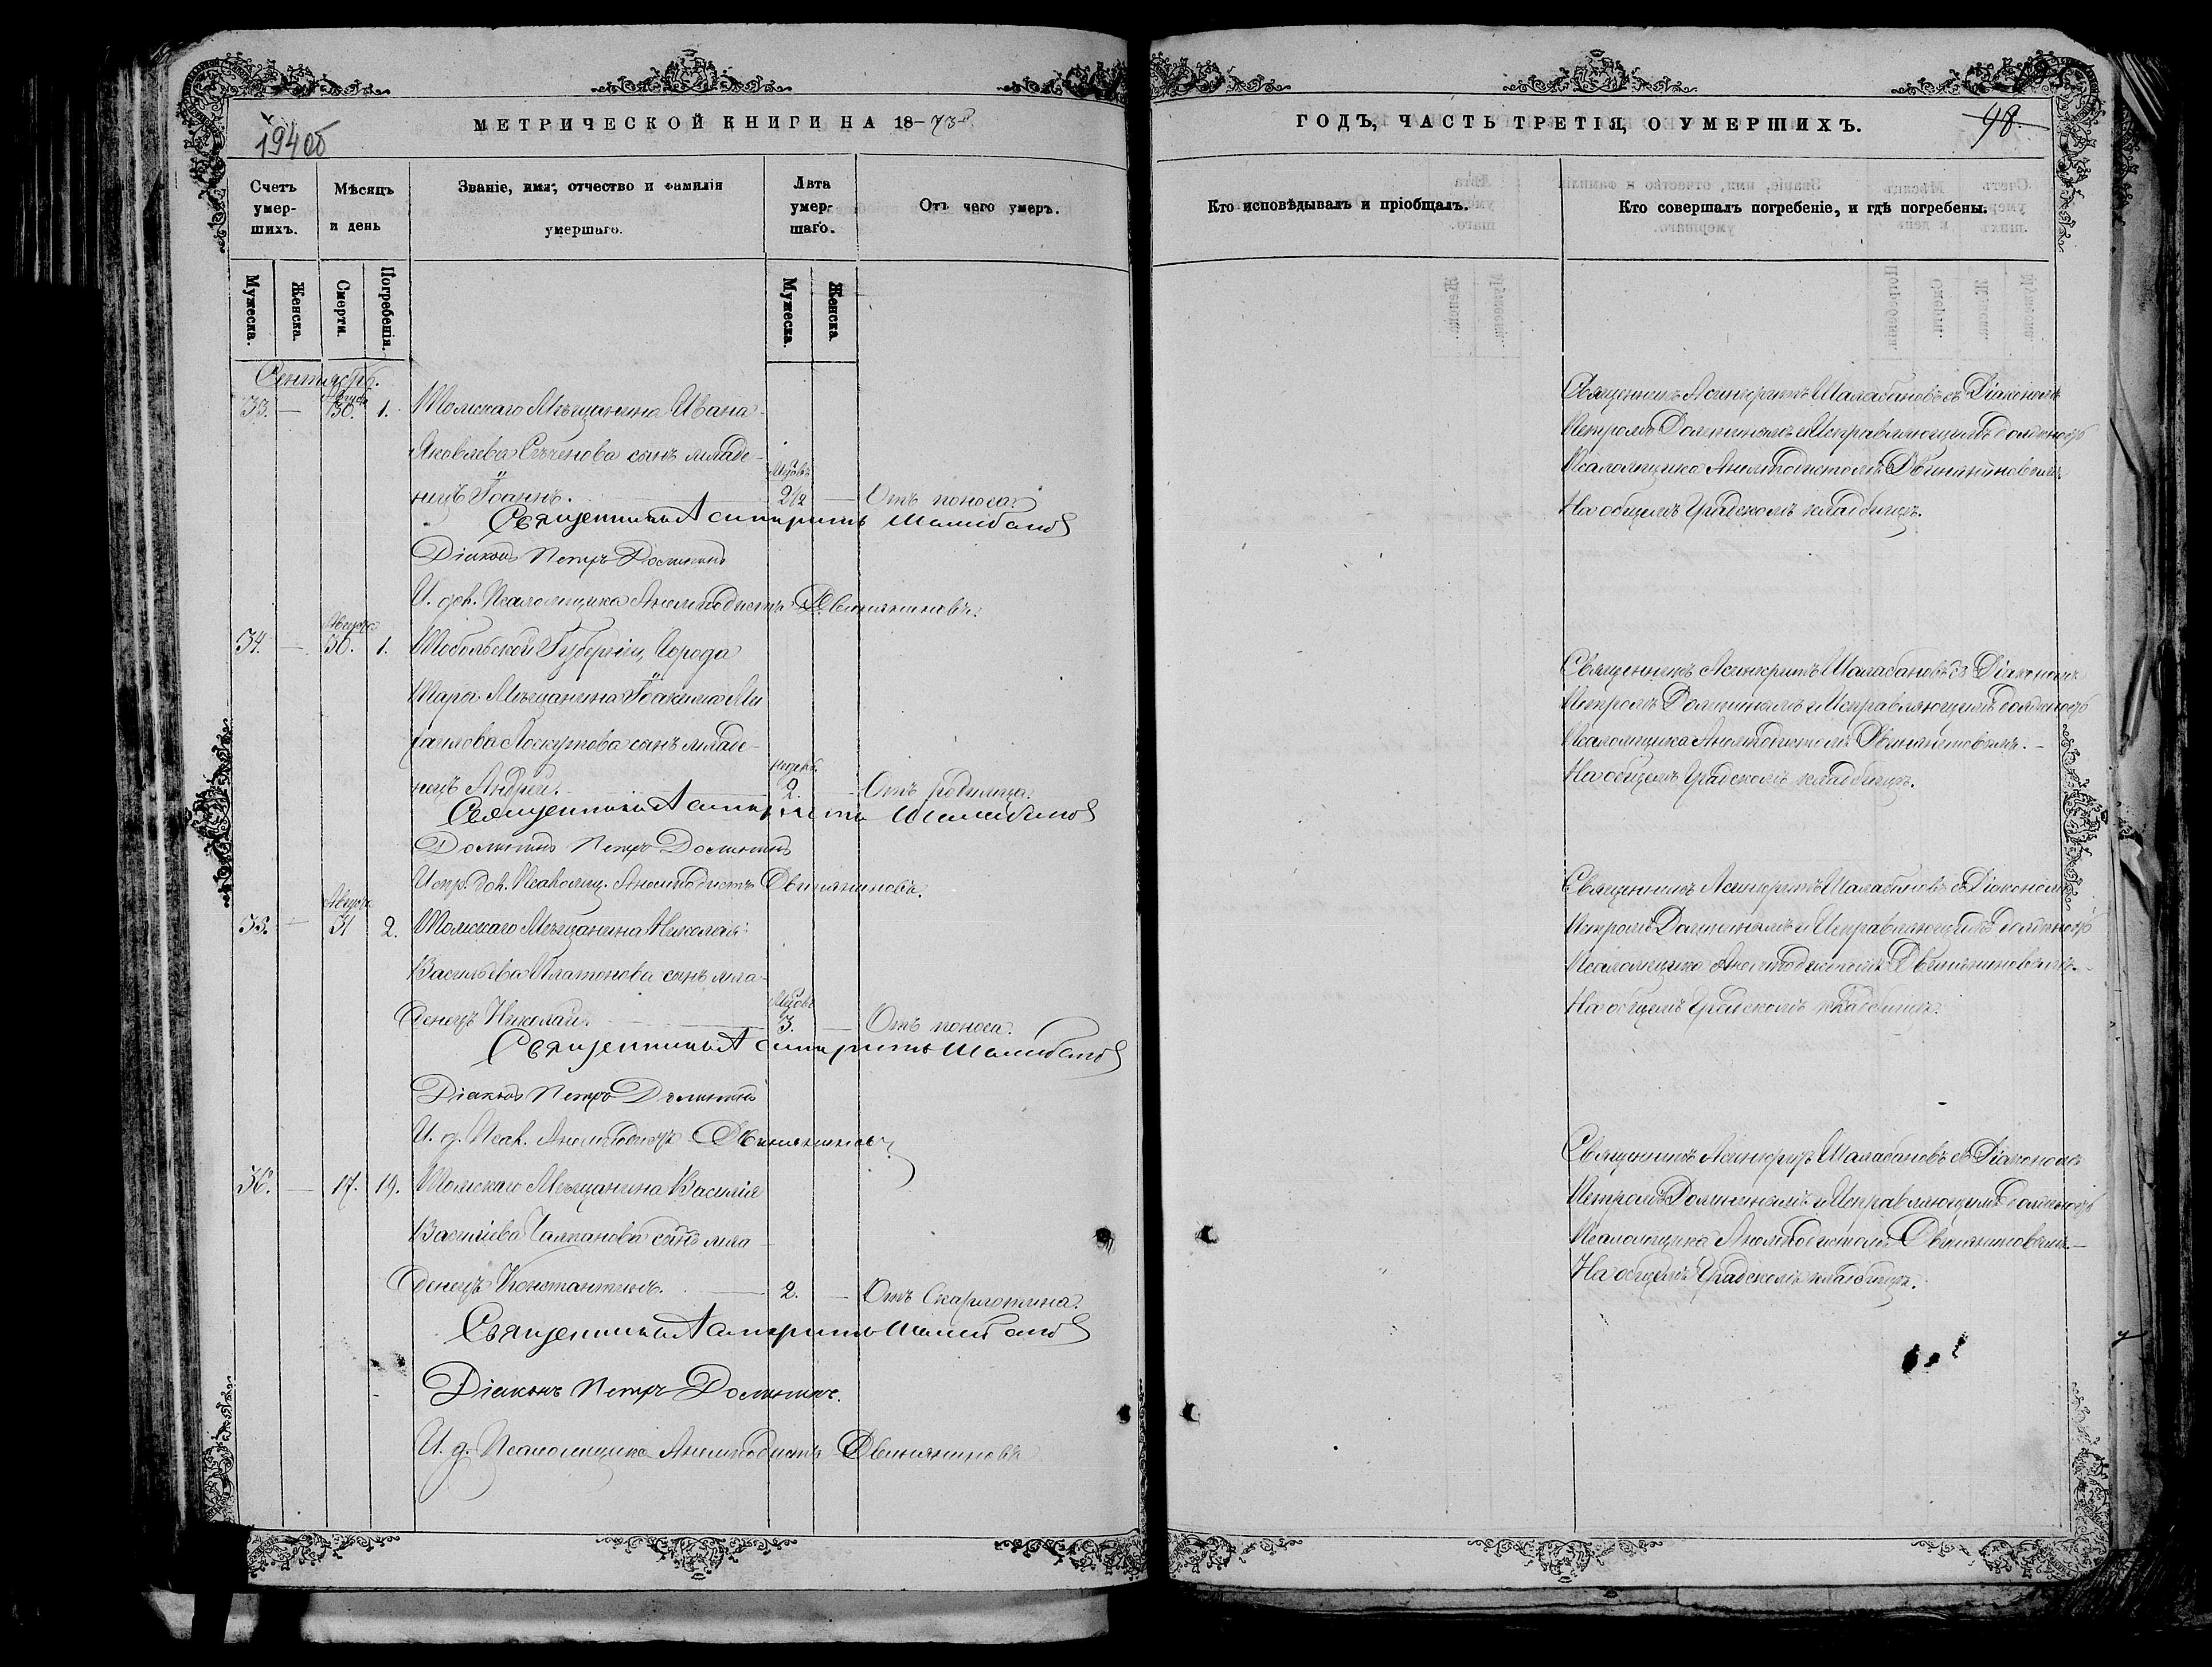 194об
МЕТРИЧЕСКОЙ КНИГИ НА 18-73й
Счетъ умер- шихъ.
Мѣсяцъ и день
Званіе, имя, отчество и фамилія умершаго.
Лѣта умер- шаго.
Отъ чего умеръ.
Мужеска.
Женска.
Смерти.
Погребенія.
Мужеска.
Женска.
Сентябрь.
Августа
33. — 30. 1. Томскаго Мѣщанина Ивана
Яковлева сынъ младе-
Мѣсцовъ
нецъ Іоаннъ. — 2½ — Отъ поноса.
Священникъ Асинкритъ Шалабановъ
Діаконъ Петръ Долининъ
И. дол. Псаломщика Анемподистъ Двиняниновъ.
Августа
34. — 30. 1. Тобольской Губерніи, Города
Тары Мѣщанина Іоакима Ми
хаилова Лоскутова сынъ младе-
недѣль
нецъ Андрей. — 2. — Отъ родимца.
Священникъ Асинкритъ Шалабановъ
Долининъ Петръ Долининъ
Испр. дол. Псаломщ. Анемподистъ Двиняниновъ.
Августа
35. — 31 2. Томскаго Мѣщанина Николая
Васильева Платонова сынъ мла-
Мѣсцовъ
денецъ Николай. — 3. — Отъ поноса.
Священникъ Асинкритъ Шалабановъ
Діаконъ Петръ Долининъ
И. д. Псал. Анемподистъ Двиняниновъ
36. — 17. 19. Томскаго Мѣщанина Василія
Василіева сынъ мла
денецъ Константинъ. — 2. — Отъ Скарлотина.
Священникъ Асинкритъ Шалабановъ
Діаконъ Петръ Долининъ.
И. д. Псаломщика Анемподистъ Двиняниновъ
ГОДЪ, ЧАСТЬ ТРЕТІЯ, О УМЕРШИХЪ.
98.
Кто исповѣдывалъ и пріобщалъ.
Кто совершалъ погребеніе, и гдѣ погребены.
Священникъ Асинкритъ Шалабановъ съ Діакономъ
Петромъ Долининымъ и Исправляющимъ должность
Псаломщика Анемподистомъ Двиняниновымъ.
На общемъ Градскомъ кладбищѣ.
Священникъ Асинкритъ Шалабановъ съ Діакономъ
Петромъ Долининымъ и Исправляющимъ должность
Псаломщика Анемподистомъ Двиняниновымъ. —
На общемъ Градскомъ кладбищѣ.
Священникъ Асинкритъ Шалабановъ съ Діакономъ
Петромъ Долининымъ и Исправляющимъ должность
Псаломщика Анемподистомъ Двиняниновымъ. —
На общемъ Градскомъ кладбищѣ.
Священникъ Асинкритъ Шалабановъ съ Діакономъ
Петромъ Долининымъ и Исправляющимъ должность
Псаломщика Анемподистомъ Двиняниновымъ. —
На общемъ Градскомъ кладбищѣ.